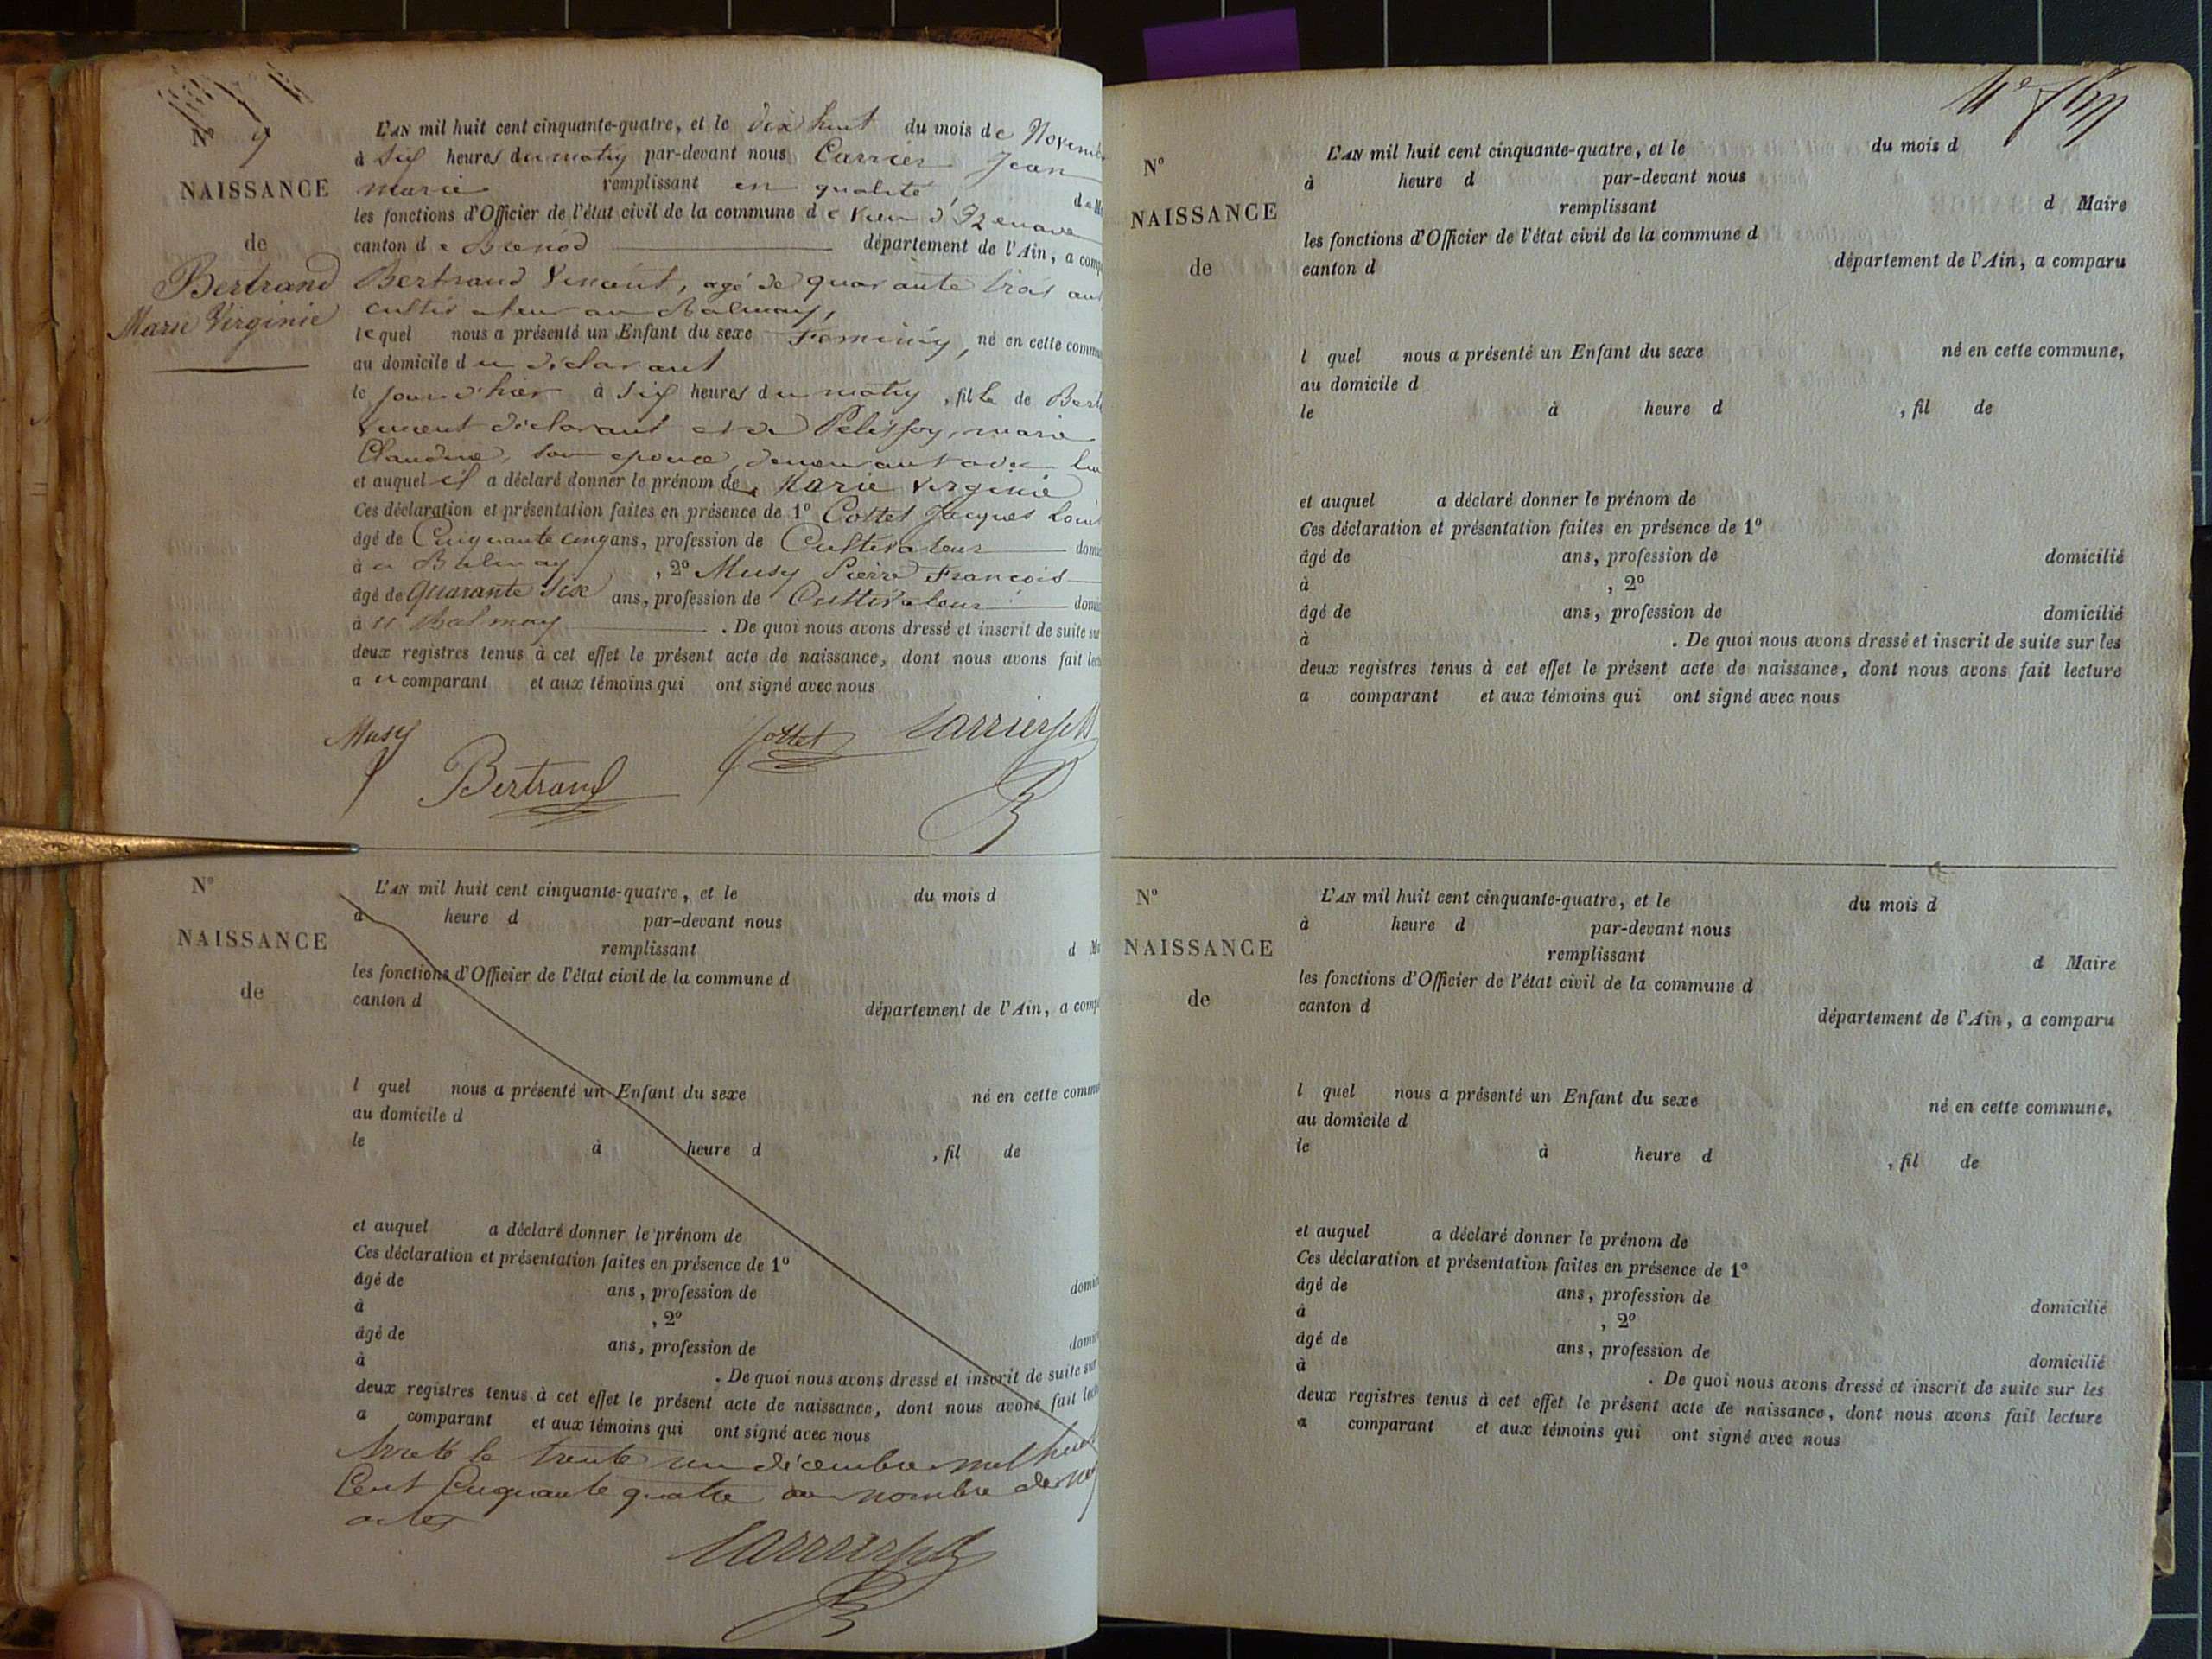 N° 9
NAISSANCE
de
Bertrand
Marie Virginie
L'AN mil huit cent cinquante-quatre, et le dix huit du mois de Novemb
à six heures du matin par-devant nous Carrier Jean
marie remplissant en qualité de M
les fonctions d'Officier de l'état civil de la commune de Vieu d'Izenave
canton de Brenod département de l'Ain, a comp
Bertrand Vincent, agé de quarante trois ans
cultivateur au Balmay,
lequel nous a présenté un Enfant du sexe Feminin, né en cette commu
au domicile du déclarant
le jour d'hier à six heures du matin, fille de Bert
Vincent déclarant et de Pelisson, marie
Claudine, son epouse, demeurant avec lui
et auquel il a déclaré donner le prénom de Marie Virginie
Ces déclaration et présentation faites en présence de 1° Cottet Jacques Loui
âgé de Cinquante cinq ans, profession de Cultivateur domic
à u Balmay, 2° Musy Pierre François
âgé de Quarante Six ans, profession de Cultivateur domi
à u Balmay. De quoi nous avons dressé et inscrit de suite sur
deux registres tenus à cet effet le présent acte de naissance, dont nous avons fait lect
a u comparant et aux témoins qui ont signé avec nous
Musy Cottet Carrier
Bertrand
N°
NAISSANCE
de
L'AN mil huit cent cinquante-quatre, et le du mois d
à heure d par-devant nous
remplissant d M
les fonctions d'Officier de l'état civil de la commune d
canton d département de l'Ain, a comp
l quel nous a présenté un Enfant du sexe né en cette commu
au domicile d
le à heure d , fil de
et auquel a déclaré donner le prénom de
Ces déclaration et présentation faites en présence de 1°
âgé de ans, profession de domic
à , 2°
âgé de ans, profession de domi
à . De quoi nous avons dressé et inscrit de suite sur
deux registres tenus à cet effet le présent acte de naissance, dont nous avons fait lect
a comparant et aux témoins qui ont signé avec nous
Arreté le trente un décembre mil huit
Cent Cinquante quatre au nombre de neuf
actes
Carrier
N°
NAISSANCE
de
L'AN mil huit cent cinquante-quatre, et le du mois d
à heure d par-devant nous
remplissant d Maire
les fonctions d'Officier de l'état civil de la commune d
canton d département de l'Ain, a comparu
l quel nous a présenté un Enfant du sexe né en cette commune,
au domicile d
le à heure d , fil de
et auquel a déclaré donner le prénom de
Ces déclaration et présentation faites en présence de 1°
âgé de ans, profession de domicilié
à , 2°
âgé de ans, profession de domicilié
à . De quoi nous avons dressé et inscrit de suite sur les
deux registres tenus à cet effet le présent acte de naissance, dont nous avons fait lecture
a comparant et aux témoins qui ont signé avec nous
N°
NAISSANCE
de
L'AN mil huit cent cinquante-quatre, et le du mois d
à heure d par-devant nous
remplissant d Maire
les fonctions d'Officier de l'état civil de la commune d
canton d département de l'Ain, a comparu
l quel nous a présenté un Enfant du sexe né en cette commune,
au domicile d
le à heure d , fil de
et auquel a déclaré donner le prénom de
Ces déclaration et présentation faites en présence de 1°
âgé de ans, profession de domicilié
à , 2°
âgé de ans, profession de domicilié
à . De quoi nous avons dressé et inscrit de suite sur les
deux registres tenus à cet effet le présent acte de naissance, dont nous avons fait lecture
a comparant et aux témoins qui ont signé avec nous